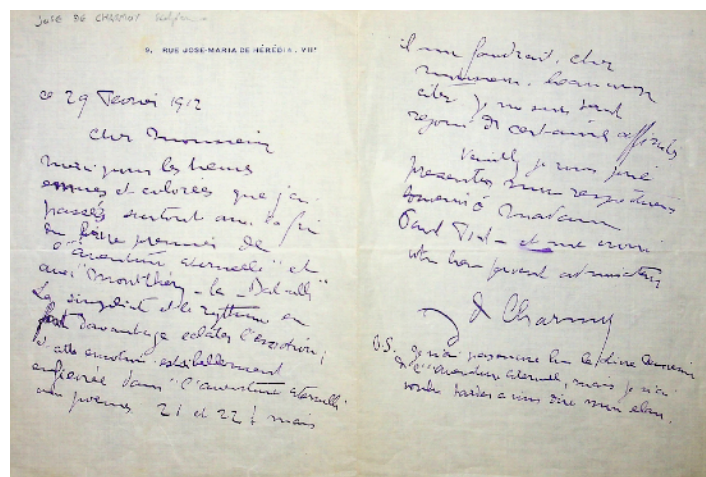 JOSÉ DE CHARMOY
9, RUE JOSÉ-MARIA DE HÉRÉDIA. VIIe
ce 29 Fevrier 1912
Cher Monsieur
Merci pour les heures
emues et colorées que j'ai
passés surtout avec la fin
du livre premier de
"l'aventure eternelle" et
avec "Montlhéry-la-Bataille"
La simplicité et le rythme en
font davantage eclater l'emotion;
et cette emotion est tellement
enfievrée dans "l'aventure eternelle"
aux poemes 21 et 22! mais
il me faudrait, cher
Monsieur, beaucoup
citer. Je me suis senti
rejoui de certaines affinités
Veuillez je vous prie
presenter mon respectueux
souvenir à Madame
Paul Fort - et me croire
votre bien fervent admirateur
de Charmoy
P.S. Je n'ai parcouru que le livre
de l'"aventure eternelle", mais je n'ai
voulu tarder a vous dire mon elan.